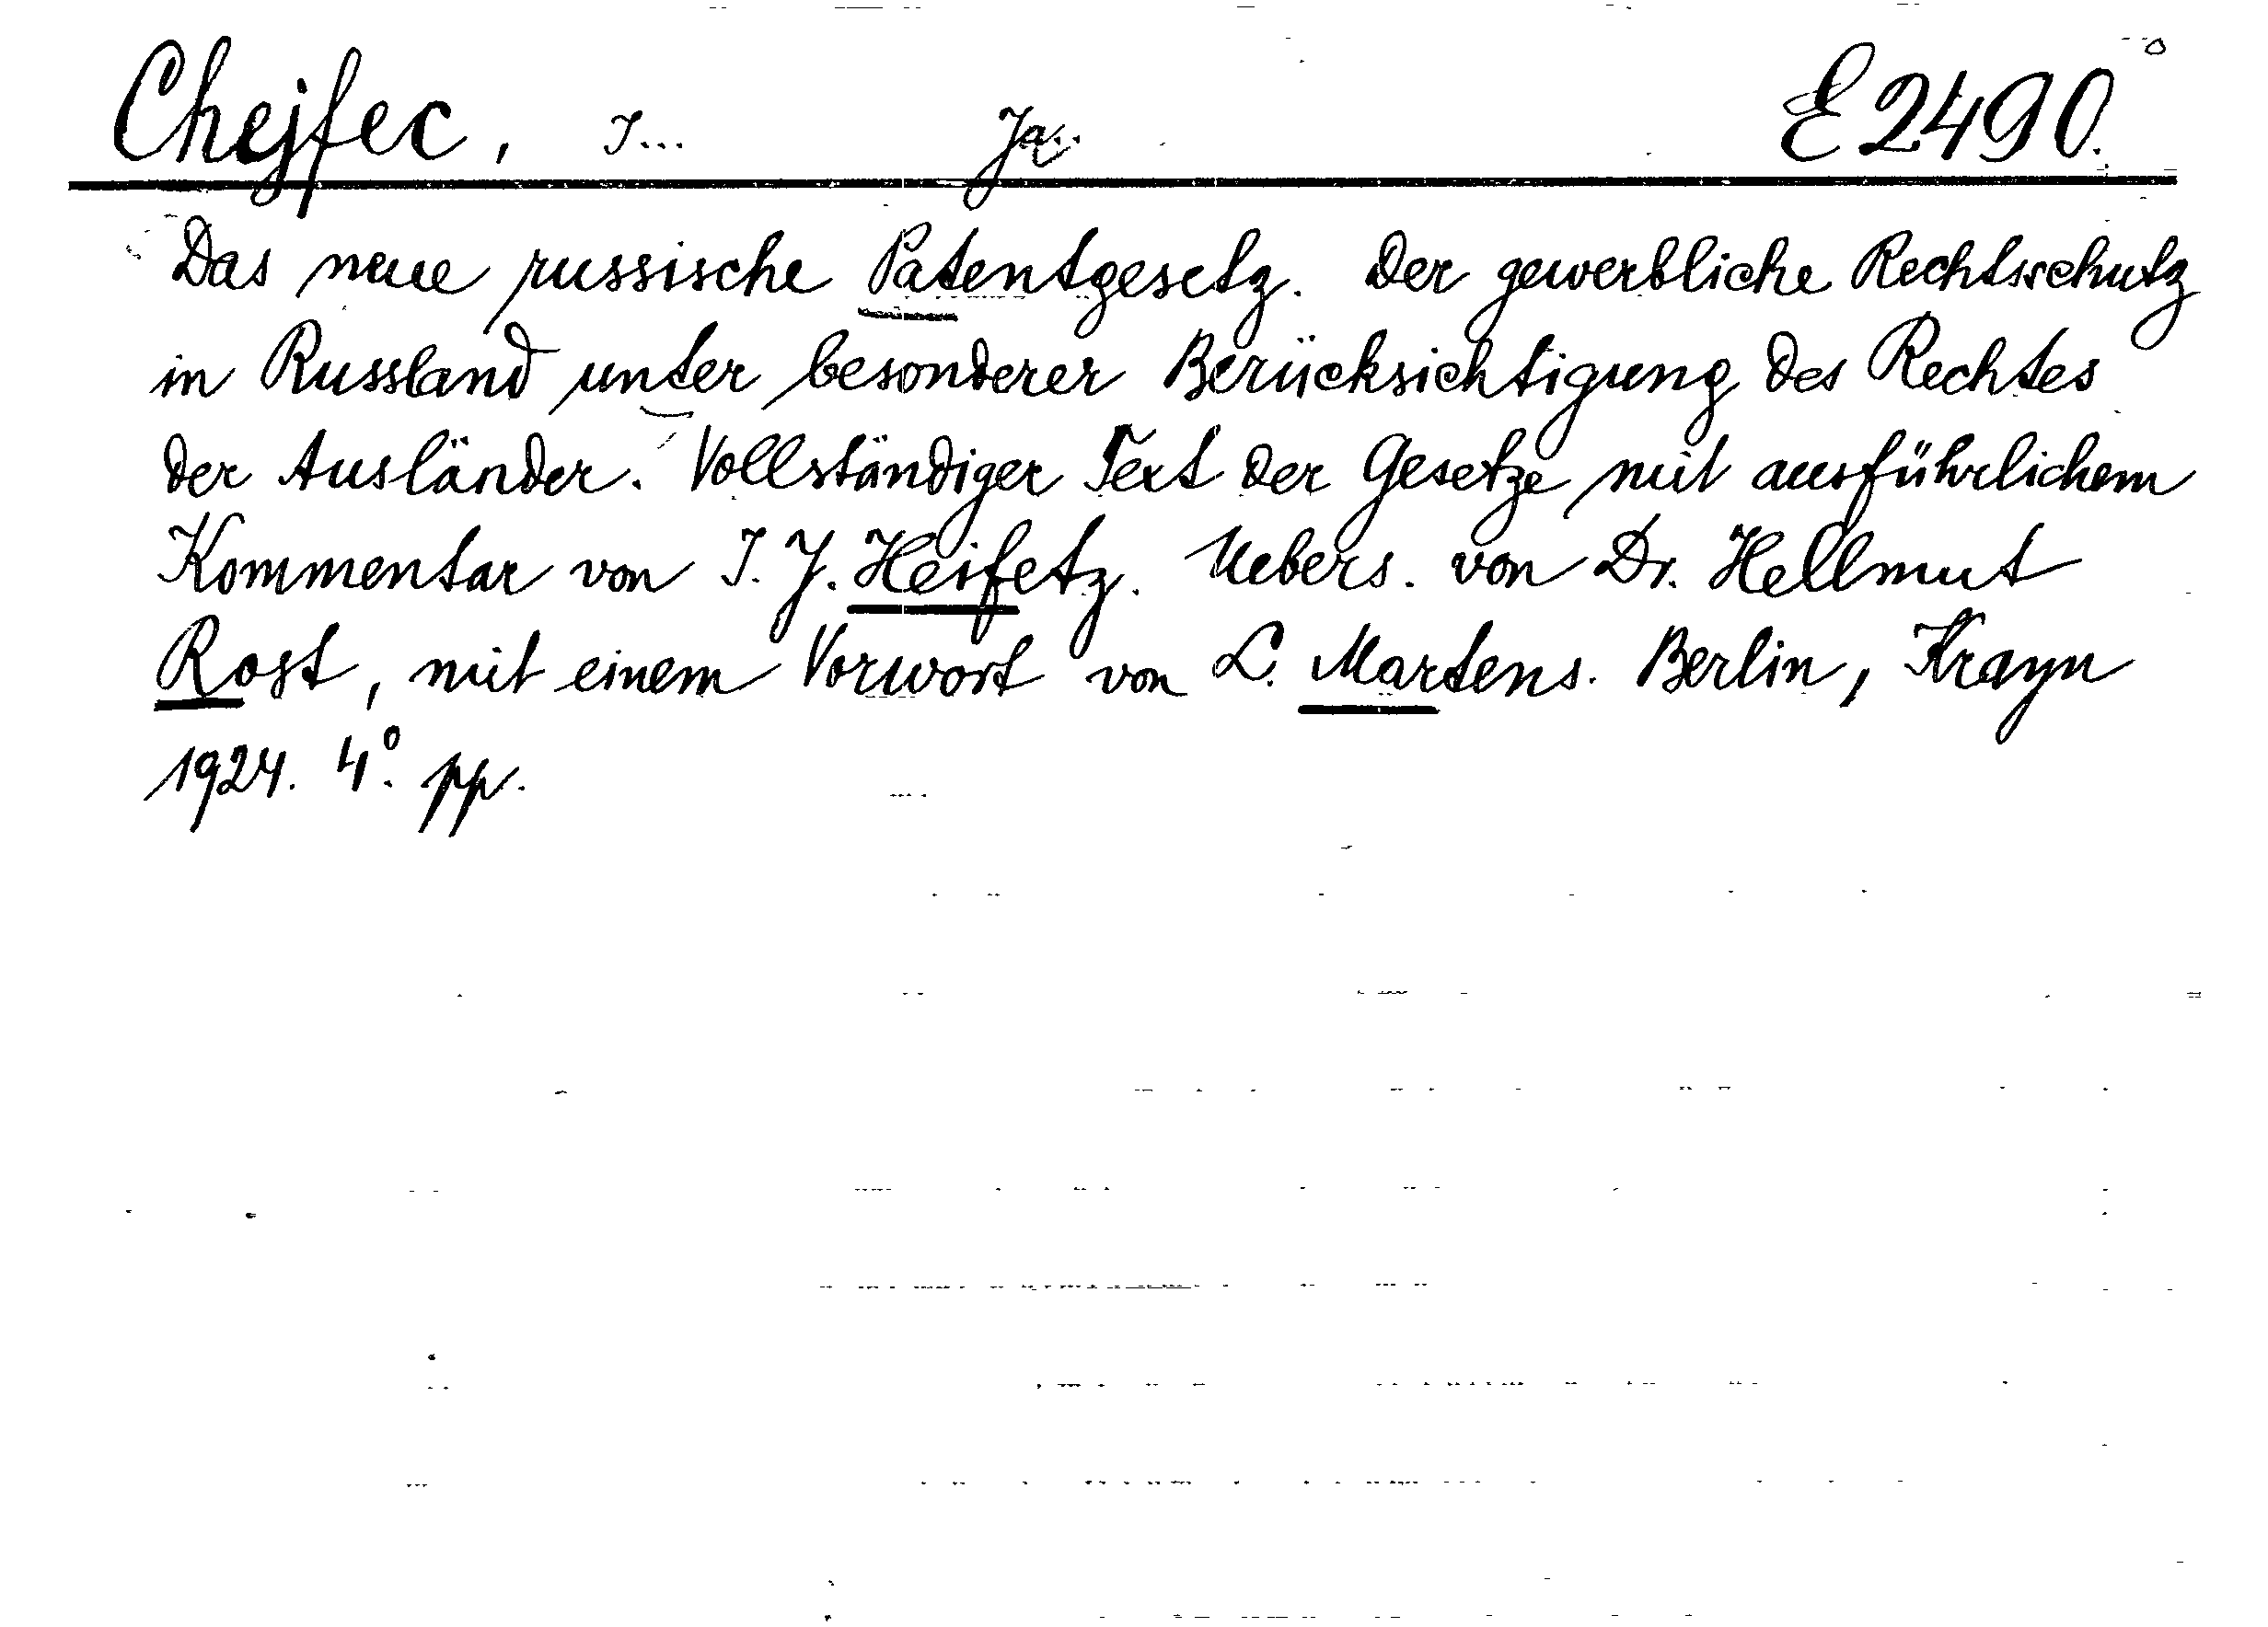 Chejfec, I... Ja.. E 2490.
Das neue russische Patentgesetz. Der gewerbliche Rechtsschutz
in Russland unter besonderer Berücksichtigung des Rechtes
der Ausländer. Vollständiger Text der Gesetze mit ausführlichem
Kommentar von I. J. Heifetz. Uebers. von Dr. Hellmut
Rost, mit einem Vorwort von L. Martens. Berlin, Krayn
1924. 4°. pp.